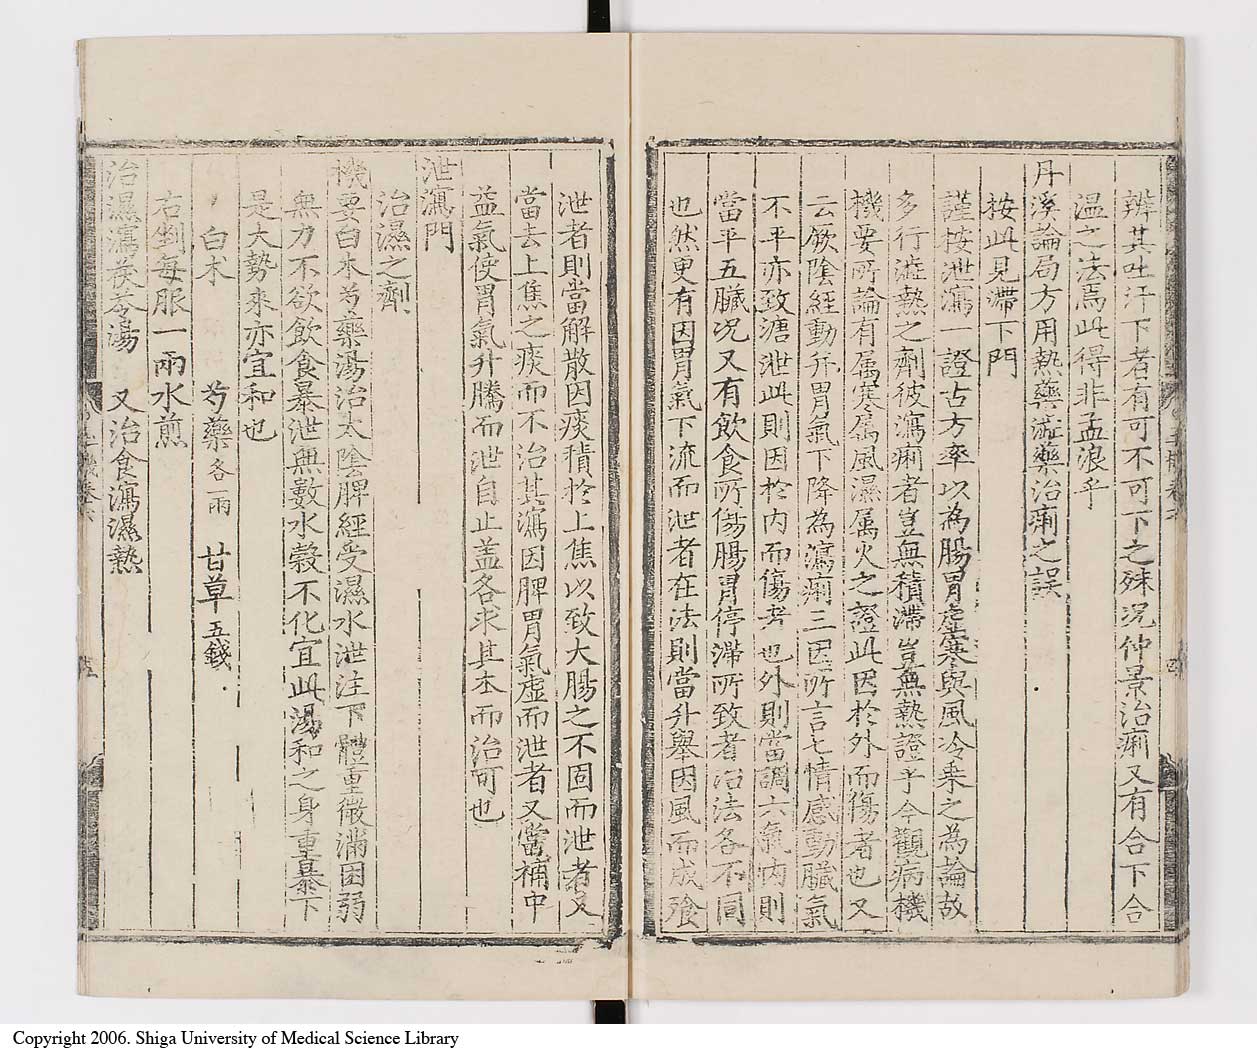 辨其吐汗下者有可不可下之殊况仲景治痢又有合下合
温之法焉此得非孟浪乎
丹溪論局方用熱藥澁藥治痢之誤
按此見滯下門
謹按泄瀉一證古方率以為腸胃虚寒與風冷乘之為論故
多行澁熱之劑彼瀉痢者豈無積滯豈無熱證乎今觀病機
機要所論有属寒属風濕属火之證此因於外而傷者也又
云厥陰經動并胃氣下降為瀉痢三因所言七情感動臟氣
不平亦致溏泄此則因於内而傷者也外則當調六氣内則
當平五臟况又有飲食所傷腸胃停滯所致者治法各不同
也然更有因胃氣下流而泄者在法則當升舉因風而成飱
泄者則當解散因痰積於上焦以致大腸之不固而泄者又
當去上焦之痰而不治其瀉因脾胃氣虚而泄者又當補中
益氣使胃氣升騰而泄自止盖各求其本而治可也
泄瀉門
治濕之劑
機要白术芍藥湯治太陰脾經受濕水泄注下體重微滿困弱
無力不欲飲食暴泄無數水穀不化宜此湯和之身重暴下
是大勢來亦宜和也
白术 芍藥各一兩 甘草五錢
右剉每服一兩水煎
治濕瀉茯苓湯 又治食瀉濕熱
Copyright 2006. Shiga University of Medical Science Library